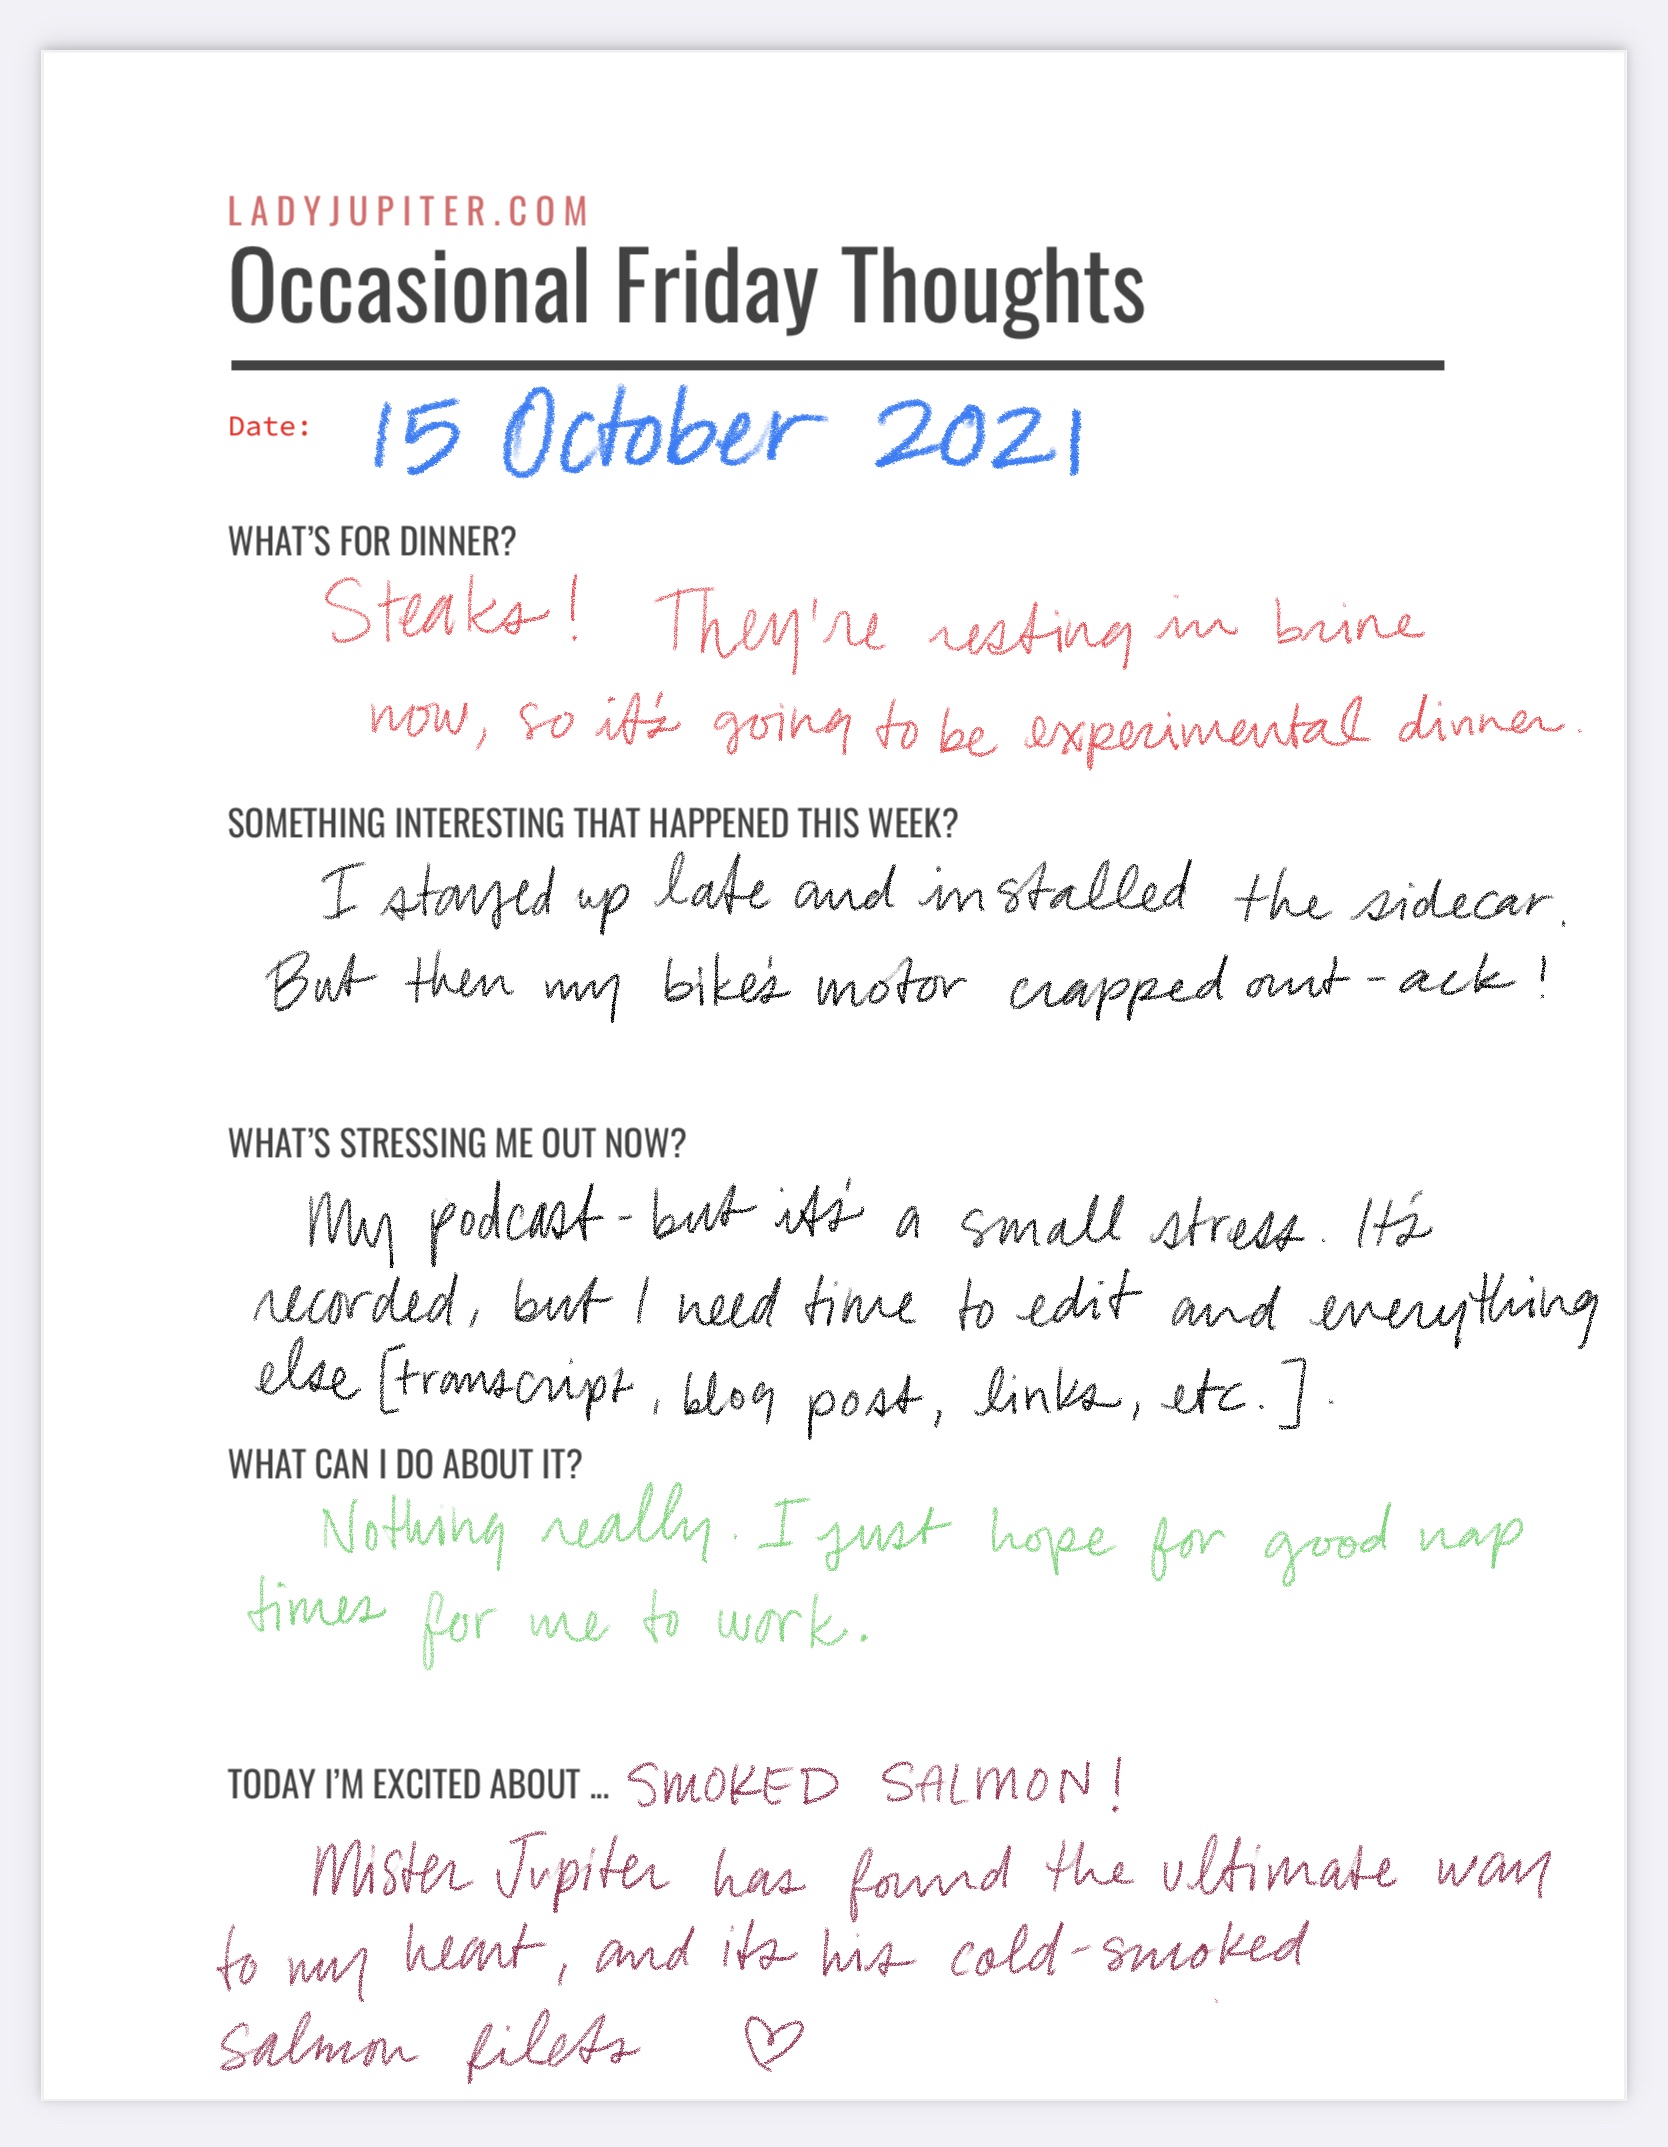 LADYJUPITER.COM
Occasional Friday Thoughts
Date: 15 October 2021
WHAT'S FOR DINNER?
Steaks! They're resting in brine
now, so it's going to be experimental dinner.
SOMETHING INTERESTING THAT HAPPENED THIS WEEK?
I stayed up late and installed the sidecar.
But then my bike's motor crapped out - ack!
WHAT'S STRESSING ME OUT NOW?
My podcast - but it's a small stress. It's
recorded, but I need time to edit and everything
else [transcript, blog post, links, etc.].
WHAT CAN I DO ABOUT IT?
Nothing really. I just hope for good nap
times for me to work.
TODAY I'M EXCITED ABOUT ... SMOKED SALMON!
Mister Jupiter has found the ultimate way
to my heart, and its his cold-smoked
salmon filets ♡